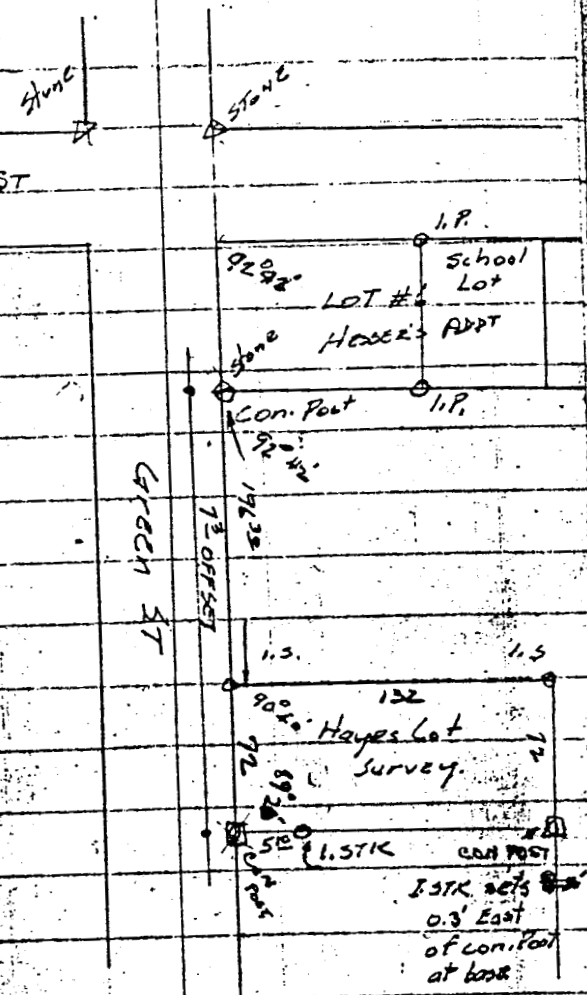 Stone
Stone
ST
I.P.
School
Lot
92° 42'
LOT #1
HESSER'S ADDT
Stone
Con. Post
I.P.
92° 42'
196
7 OFFSET
Green ST
I.S.
I.S
132
90° 40'
Hayes Lot
Survey.
72
72
89° 20'
I. STK
CON POST
CON POST
I STK sets
0.3' East
of con. Post
at base